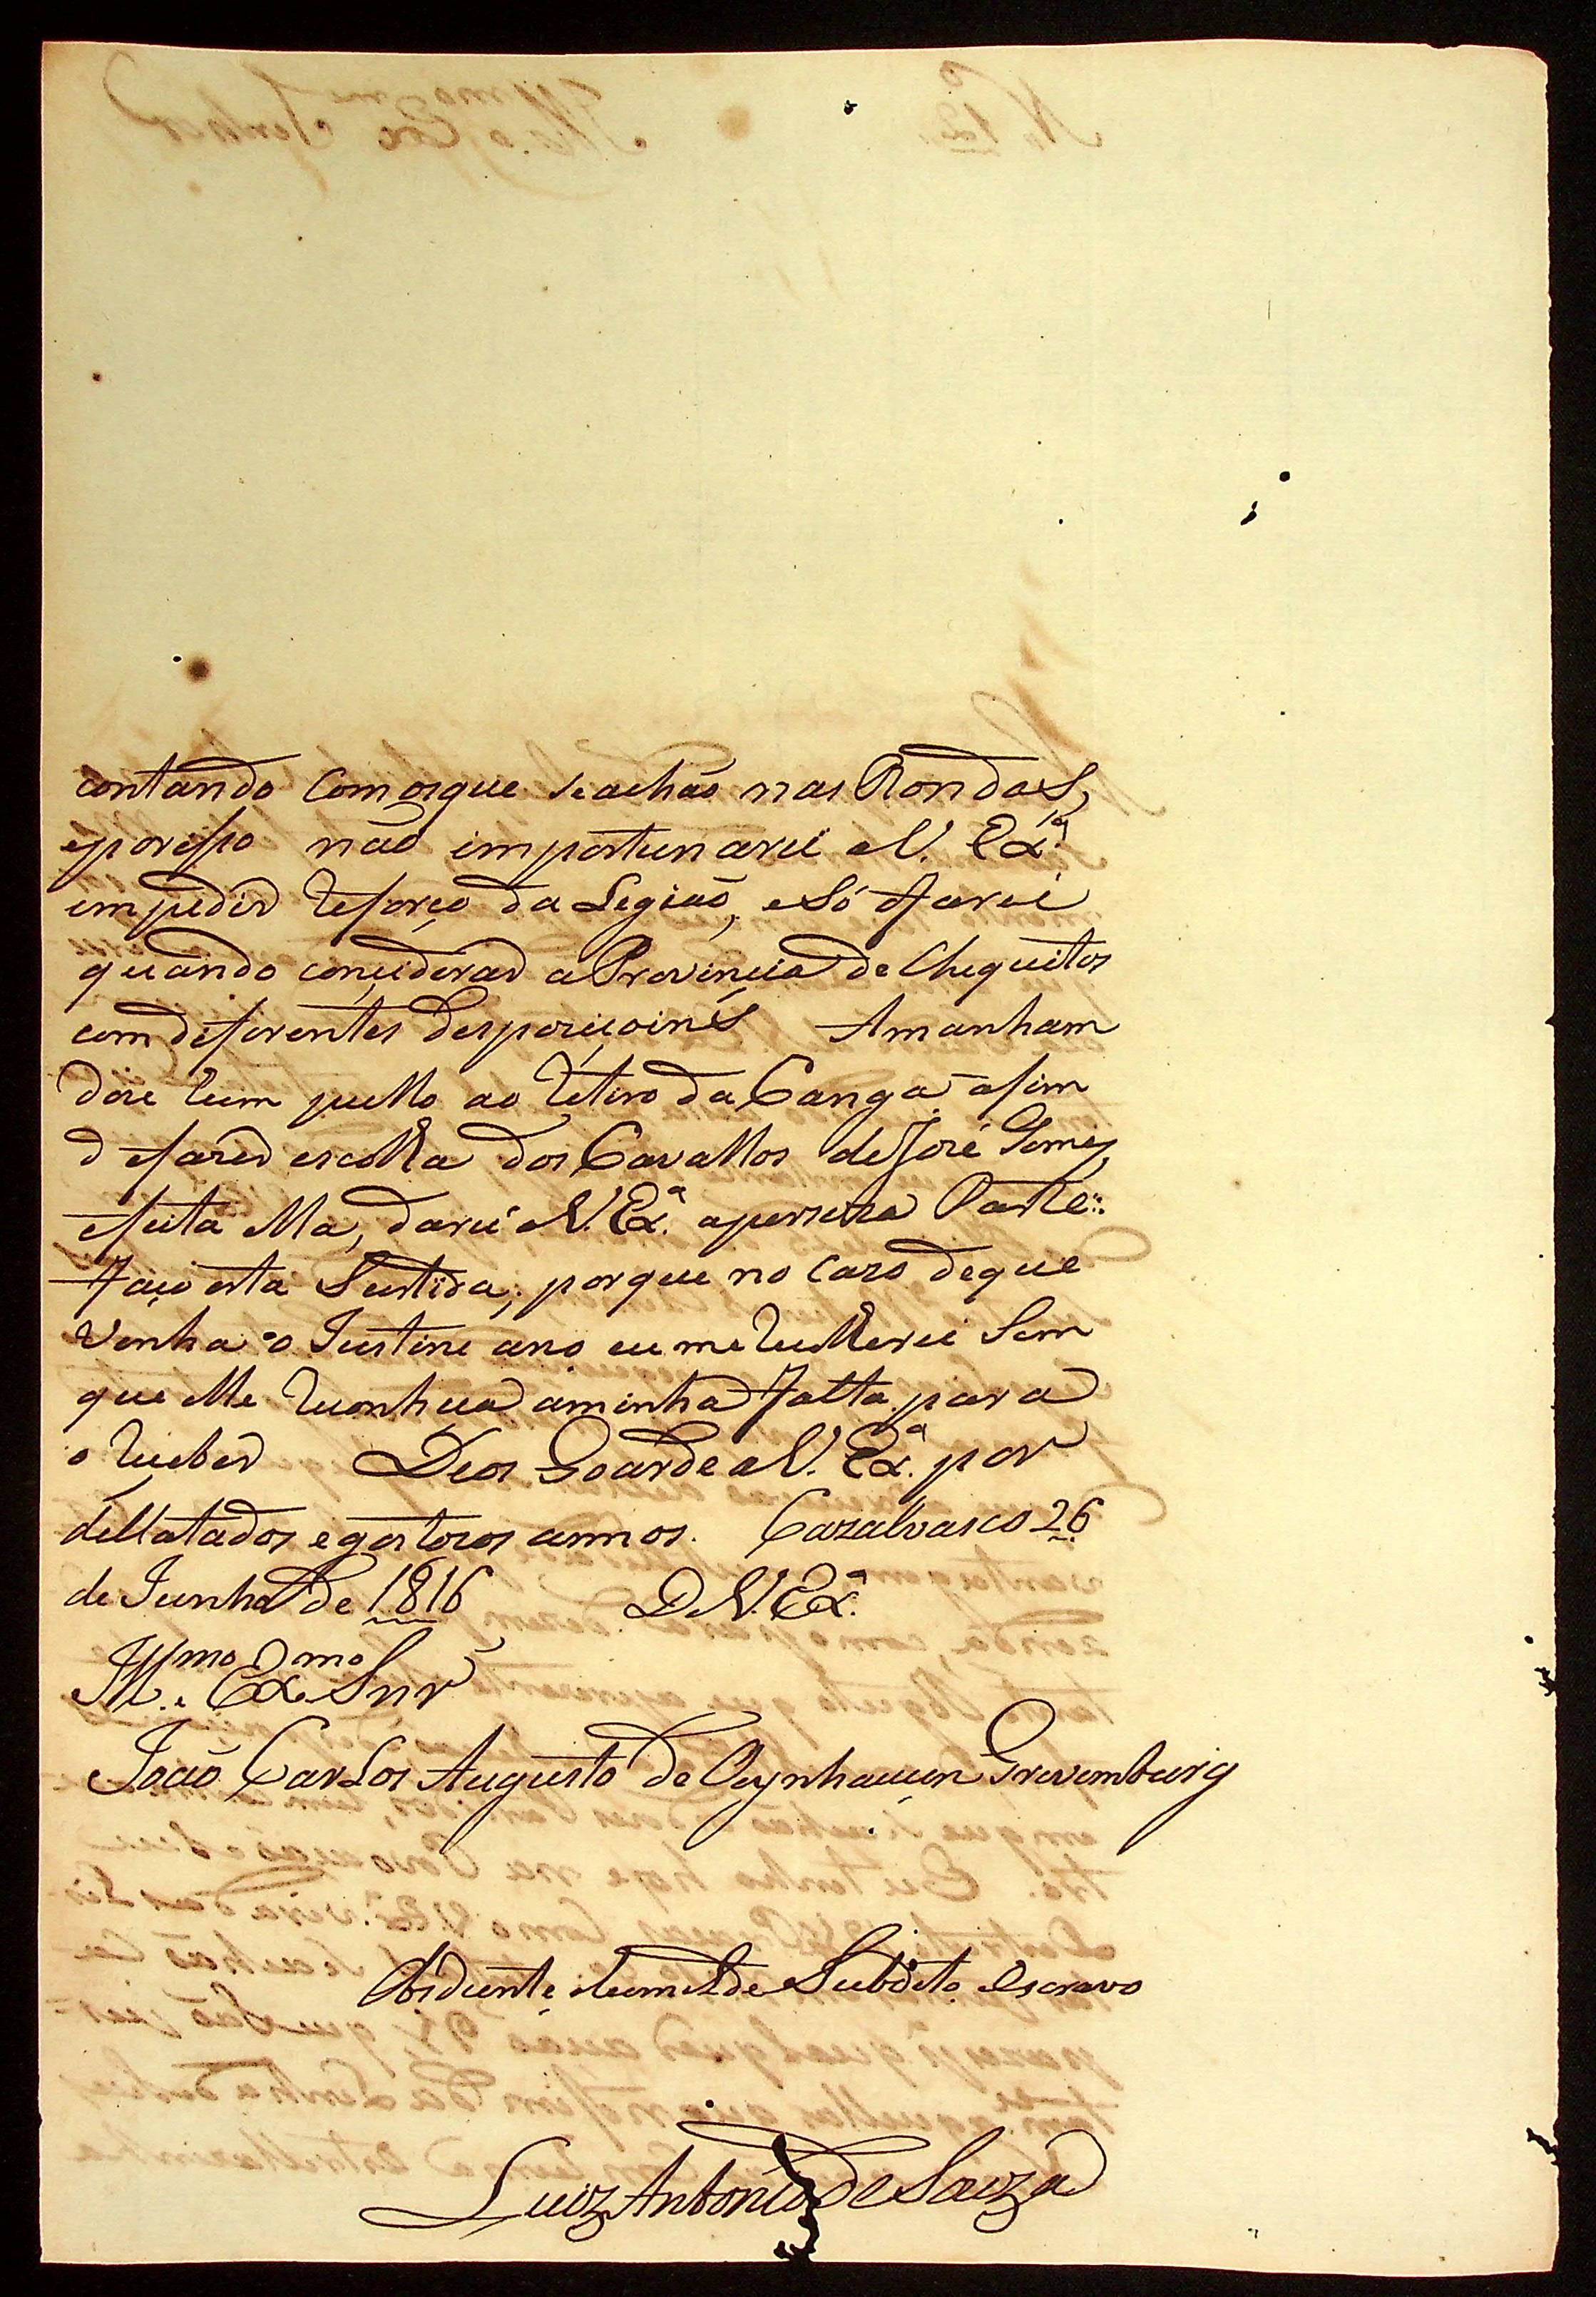 contando Com os que se achão nas Rondas,
e por iSso não importunarei a V. Exª.
em pedir Reforço da Legião, e Só o farei
quando conciderar a Provincia de Chequitos
com deferentes despoziçoins Amanham
dou hum pullo ao Retiro da Canga afim
de fazer escolha dos Cavallos de José Gomes,
e feita ella, darei a V. Exª. a percuza Parte:
Faço esta Surtida; porque no cazo de que
Venha o Justini ano eu me recolherei Sem
que elle reconheça a minha falta para
o receber Deos Goarde a V. Exª. por
delatados e gostozos annos. Cazalvasco 26
de Junho de 1816 D. V. Exª.
Illmo. e Exmo Snr
João Carlos Augusto de Oeynhaucen Grevemburg
Obidiente, humilde Subdito e escravo
Luiz Antonio de Souza